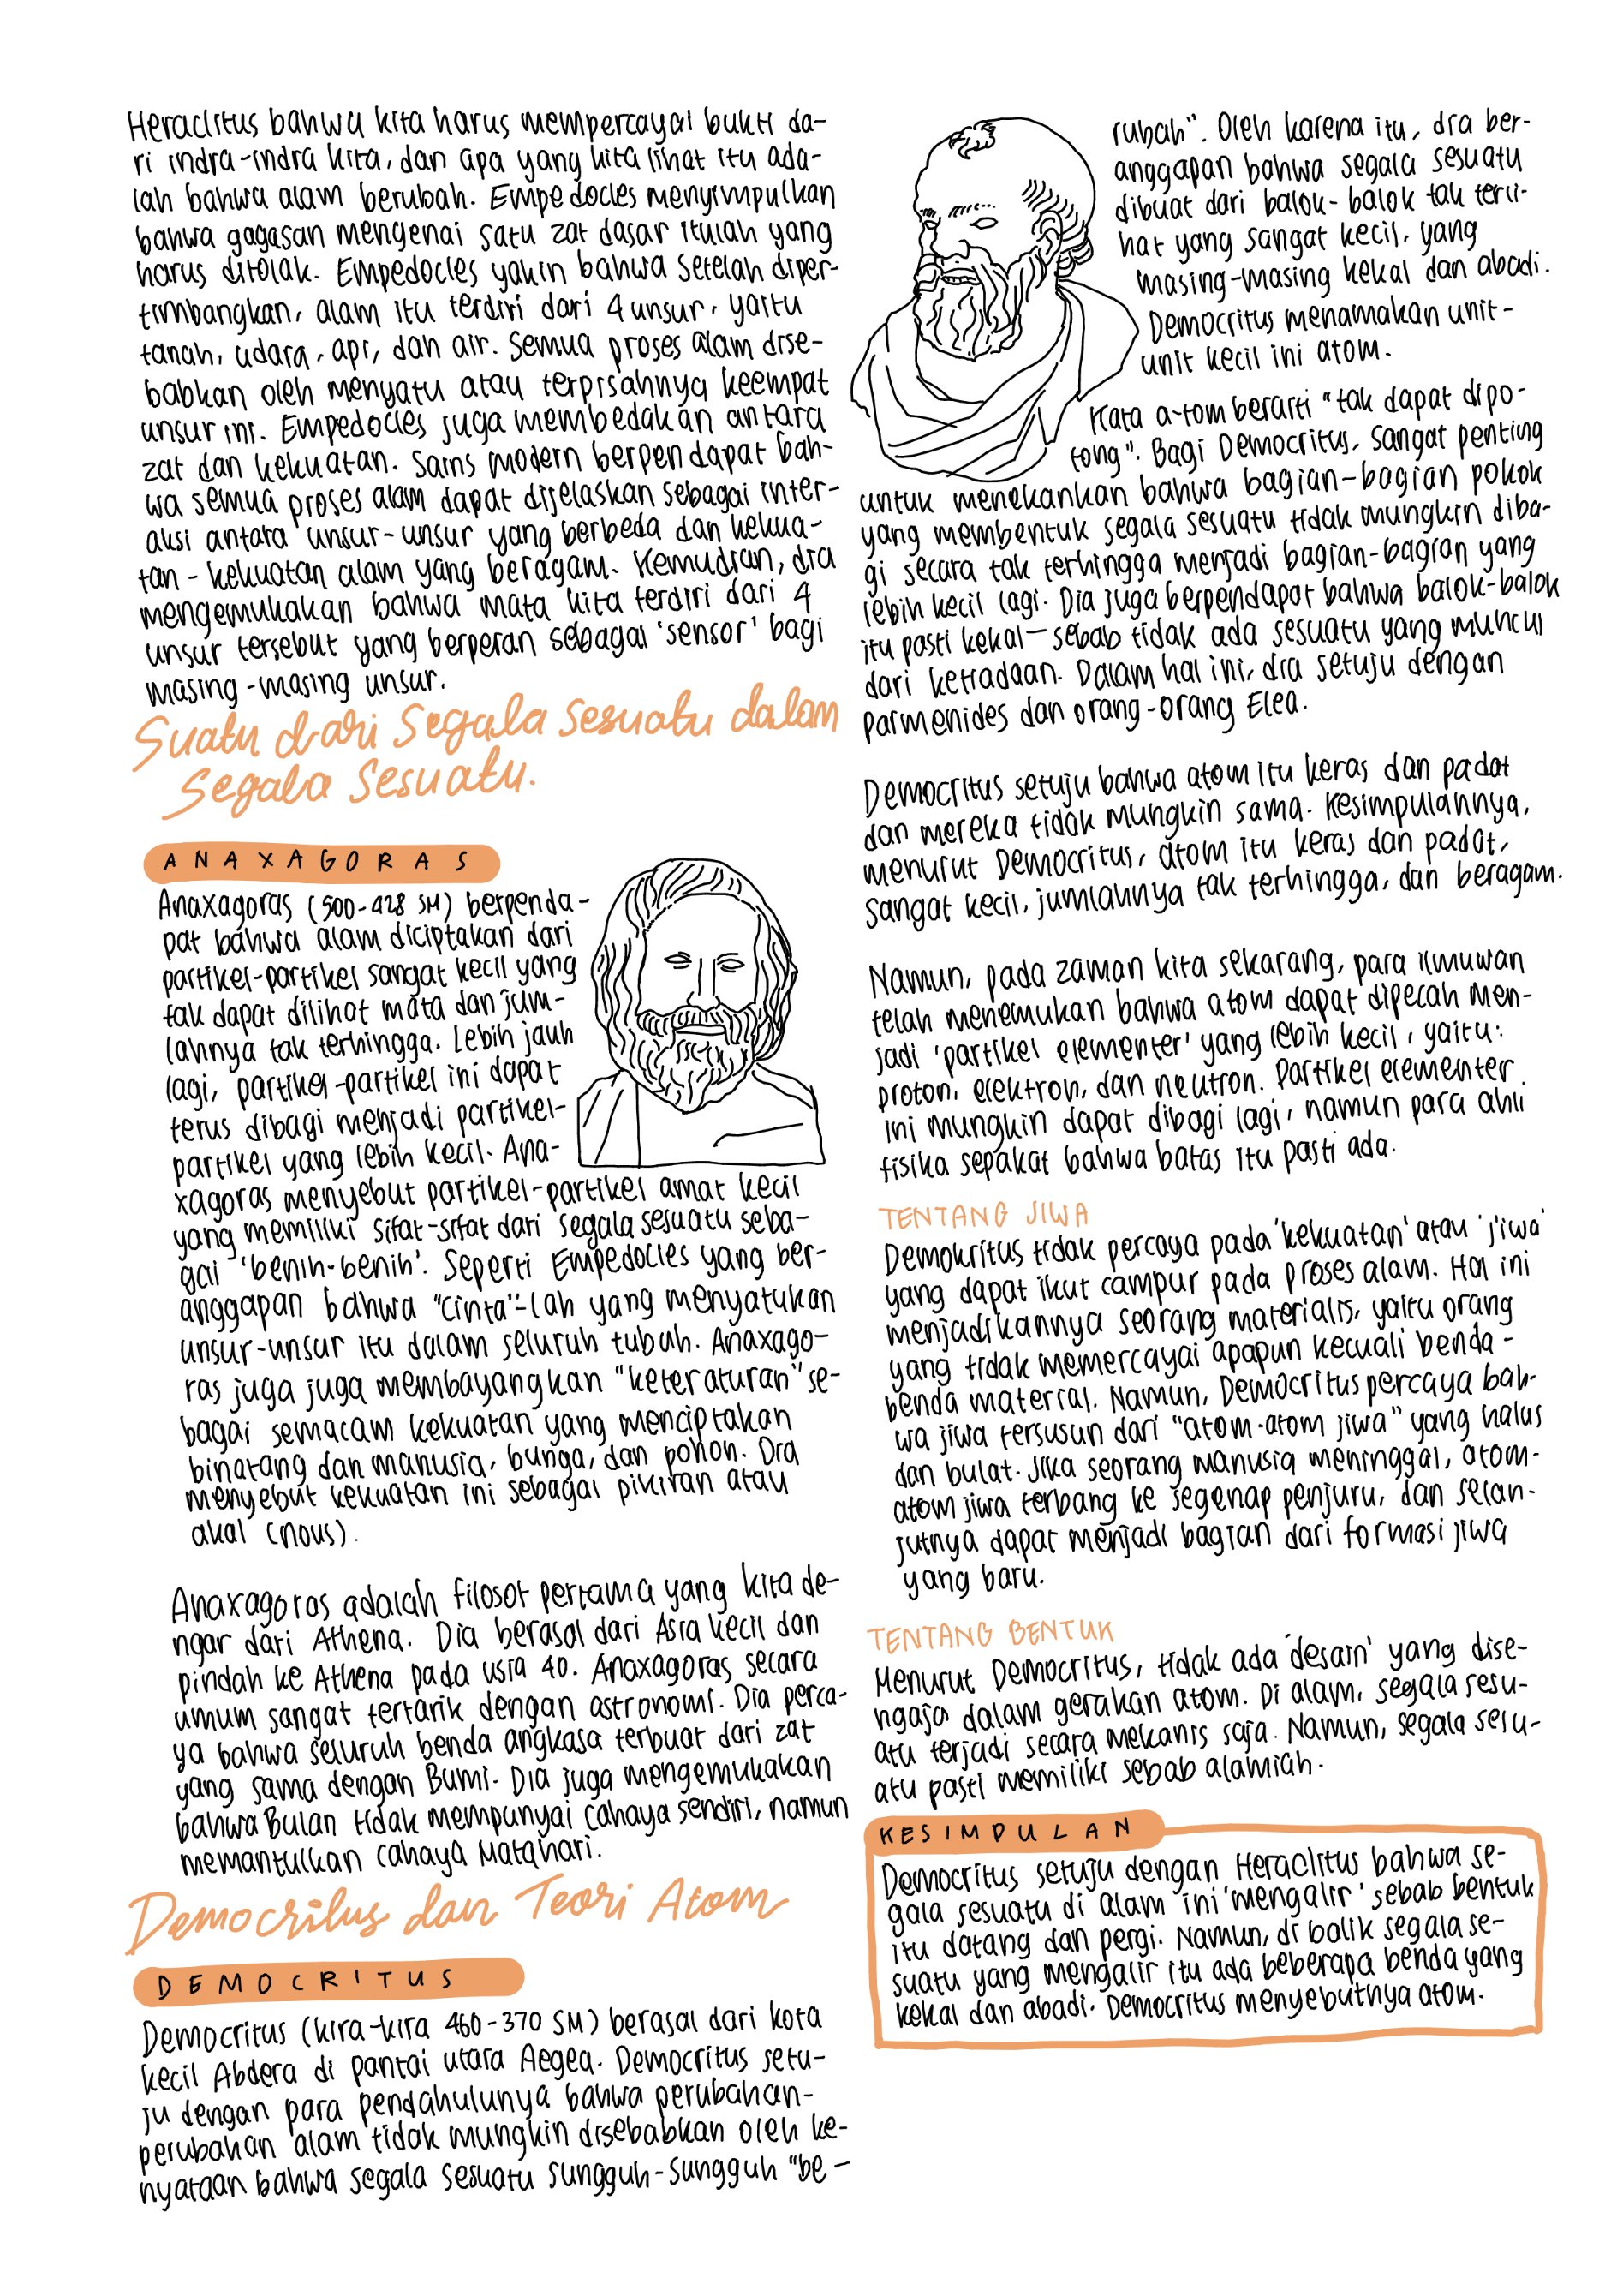 Heraclitus bahwa kita harus mempercayai bukti da-
ri indra-indra kita, dan apa yang kita lihat itu ada-
lah bahwa alam berubah. Empedocles menyimpulkan
bahwa gagasan mengenai satu zat dasar itulah yang
harus ditolak. Empedocles yakin bahwa setelah diper-
timbangkan, alam itu terdiri dari 4 unsur, yaitu
tanah, udara, api, dan air. Semua proses alam dise-
babkan oleh menyatu atau terpisahnya keempat
unsur ini. Empedocles juga membedakan antara
zat dan kekuatan. Sains modern berpendapat bah-
wa semua proses alam dapat dijelaskan sebagai inter-
aksi antara unsur-unsur yang berbeda dan kekua-
tan-kekuatan alam yang beragam. Kemudian, dia
mengemukakan bahwa mata kita terdiri dari 4
unsur tersebut yang berperan sebagai 'sensor' bagi
masing-masing unsur.
Suatu dari Segala Sesuatu dalam
Segala Sesuatu.
ANAXAGORAS
Anaxagoras (500-428 SM) berpenda-
pat bahwa alam diciptakan dari
partikel-partikel sangat kecil yang
tak dapat dilihat mata dan jum-
lahnya tak terhingga. Lebih jauh
lagi, partikel-partikel ini dapat
terus dibagi menjadi partikel-
partikel yang lebih kecil. Ana-
xagoras menyebut partikel-partikel amat kecil
yang memiliki sifat-sifat dari segala sesuatu seba-
gai 'benih-benih'. Seperti Empedocles yang ber-
anggapan bahwa "cinta"-lah yang menyatukan
unsur-unsur itu dalam seluruh tubuh. Anaxago-
ras juga juga membayangkan "keteraturan" se-
bagai semacam kekuatan yang menciptakan
binatang dan manusia, bunga, dan pohon. Dia
menyebut kekuatan ini sebagai pikiran atau
akal (nous).
Anaxagoras adalah filosof pertama yang kita de-
ngar dari Athena. Dia berasal dari Asia kecil dan
pindah ke Athena pada usia 40. Anaxagoras secara
umum sangat tertarik dengan astronomi. Dia perca-
ya bahwa seluruh benda angkasa terbuat dari zat
yang sama dengan Bumi. Dia juga mengemukakan
bahwa Bulan tidak mempunyai cahaya sendiri, namun
memantulkan cahaya Matahari.
Democritus dan Teori Atom
DEMOCRITUS
Democritus (kira-kira 460-370 SM) berasal dari kota
kecil Abdera di pantai utara Aegea. Democritus setu-
ju dengan para pendahulunya bahwa perubahan-
perubahan alam tidak mungkin disebabkan oleh ke-
nyataan bahwa segala sesuatu sungguh-sungguh "be-
rubah". Oleh karena itu, dia ber-
anggapan bahwa segala sesuatu
dibuat dari balok-balok tak terli-
hat yang sangat kecil, yang
masing-masing kekal dan abadi.
Democritus menamakan unit-
unit kecil ini atom.
Kata a-tom berarti "tak dapat dipo-
tong". Bagi Democritus, sangat penting
untuk menekankan bahwa bagian-bagian pokok
yang membentuk segala sesuatu tidak mungkin diba-
gi secara tak terhingga menjadi bagian-bagian yang
lebih kecil lagi. Dia juga berpendapat bahwa balok-balok
itu pasti kekal—sebab tidak ada sesuatu yang muncul
dari ketiadaan. Dalam hal ini, dia setuju dengan
Parmenides dan orang-orang Elea.
Democritus setuju bahwa atom itu keras dan padat
dan mereka tidak mungkin sama. Kesimpulannya,
menurut Democritus, atom itu keras dan padat,
sangat kecil, jumlahnya tak terhingga, dan beragam.
Namun, pada zaman kita sekarang, para ilmuwan
telah menemukan bahwa atom dapat dipecah men-
jadi 'partikel elementer' yang lebih kecil, yaitu:
proton, elektron, dan neutron. Partikel elementer
ini mungkin dapat dibagi lagi, namun para ahli
fisika sepakat bahwa batas itu pasti ada.
TENTANG JIWA
Demokritus tidak percaya pada 'kekuatan' atau 'jiwa'
yang dapat ikut campur pada proses alam. Hal ini
menjadikannya seorang materialis, yaitu orang
yang tidak memercayai apapun kecuali benda-
benda material. Namun, Democritus percaya bah-
wa jiwa tersusun dari "atom-atom jiwa" yang halus
dan bulat. Jika seorang manusia meninggal, atom-
atom jiwa terbang ke segenap penjuru, dan selan-
jutnya dapat menjadi bagian dari formasi jiwa
yang baru.
TENTANG BENTUK
Menurut Democritus, tidak ada 'desain' yang dise-
ngaja dalam gerakan atom. Di alam, segala sesu-
atu terjadi secara mekanis saja. Namun, segala sesu-
atu pasti memiliki sebab alamiah.
KESIMPULAN
Democritus setuju dengan Heraclitus bahwa se-
gala sesuatu di alam ini 'mengalir' sebab bentuk
itu datang dan pergi. Namun, di balik segala se-
suatu yang mengalir itu ada beberapa benda yang
kekal dan abadi. Democritus menyebutnya atom.